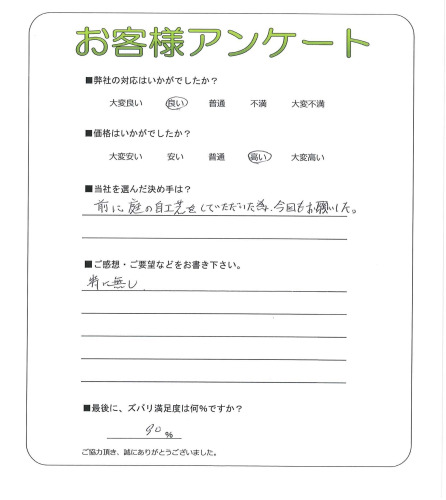 お客様アンケート
■弊社の対応はいかがでしたか？
大変良い 良い 普通 不満 大変不満
■価格はいかがでしたか？
大変安い 安い 普通 高い 大変高い
■当社を選んだ決め手は？
前に、庭の自工事をしていただいた為、今回もお願いした。
■ご感想・ご要望などをお書き下さい。
特に無し
■最後に、ズバリ満足度は何%ですか？
90 %
ご協力頂き、誠にありがとうございました。